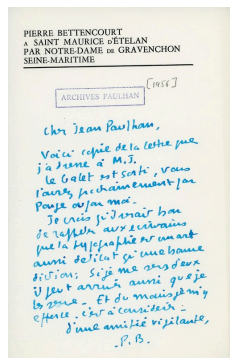 PIERRE BETTENCOURT
A SAINT MAURICE D'ÉTELAN
PAR NOTRE-DAME DE GRAVENCHON
SEINE-MARITIME
[1956]
ARCHIVES PAULHAN
Cher Jean Paulhan,
Voici copie de la lettre que
j'adresse à M.J.
Le Galet est sorti, vous
l'aurez prochainement par
Ponge ou par moi.
Je crois qu'il serait bon
de rappeler aux écrivains
que la typographie est un art
aussi délicat qu'une bonne
diction; Si je me sers d'eux
il peut arriver aussi que je
les serve. Et du moins je m'y
efforce. c'est à considérer.
d'une amitié vigilante,
P.B.